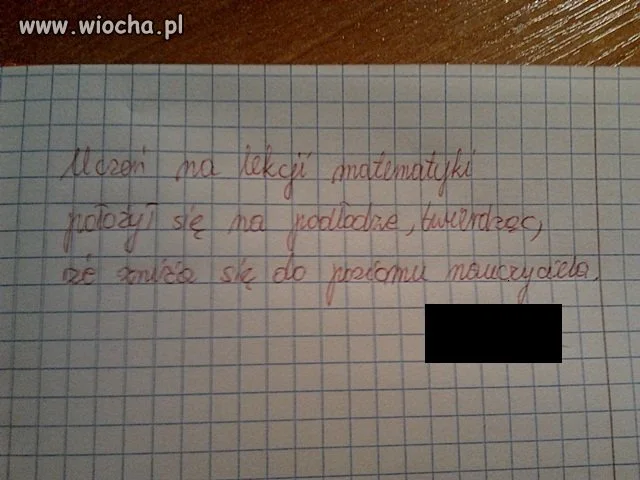 www.wiocha.pl
Uczeń na lekcji matematyki
położył się na podłodze, twierdząc,
że zniża się do poziomu nauczyciela.